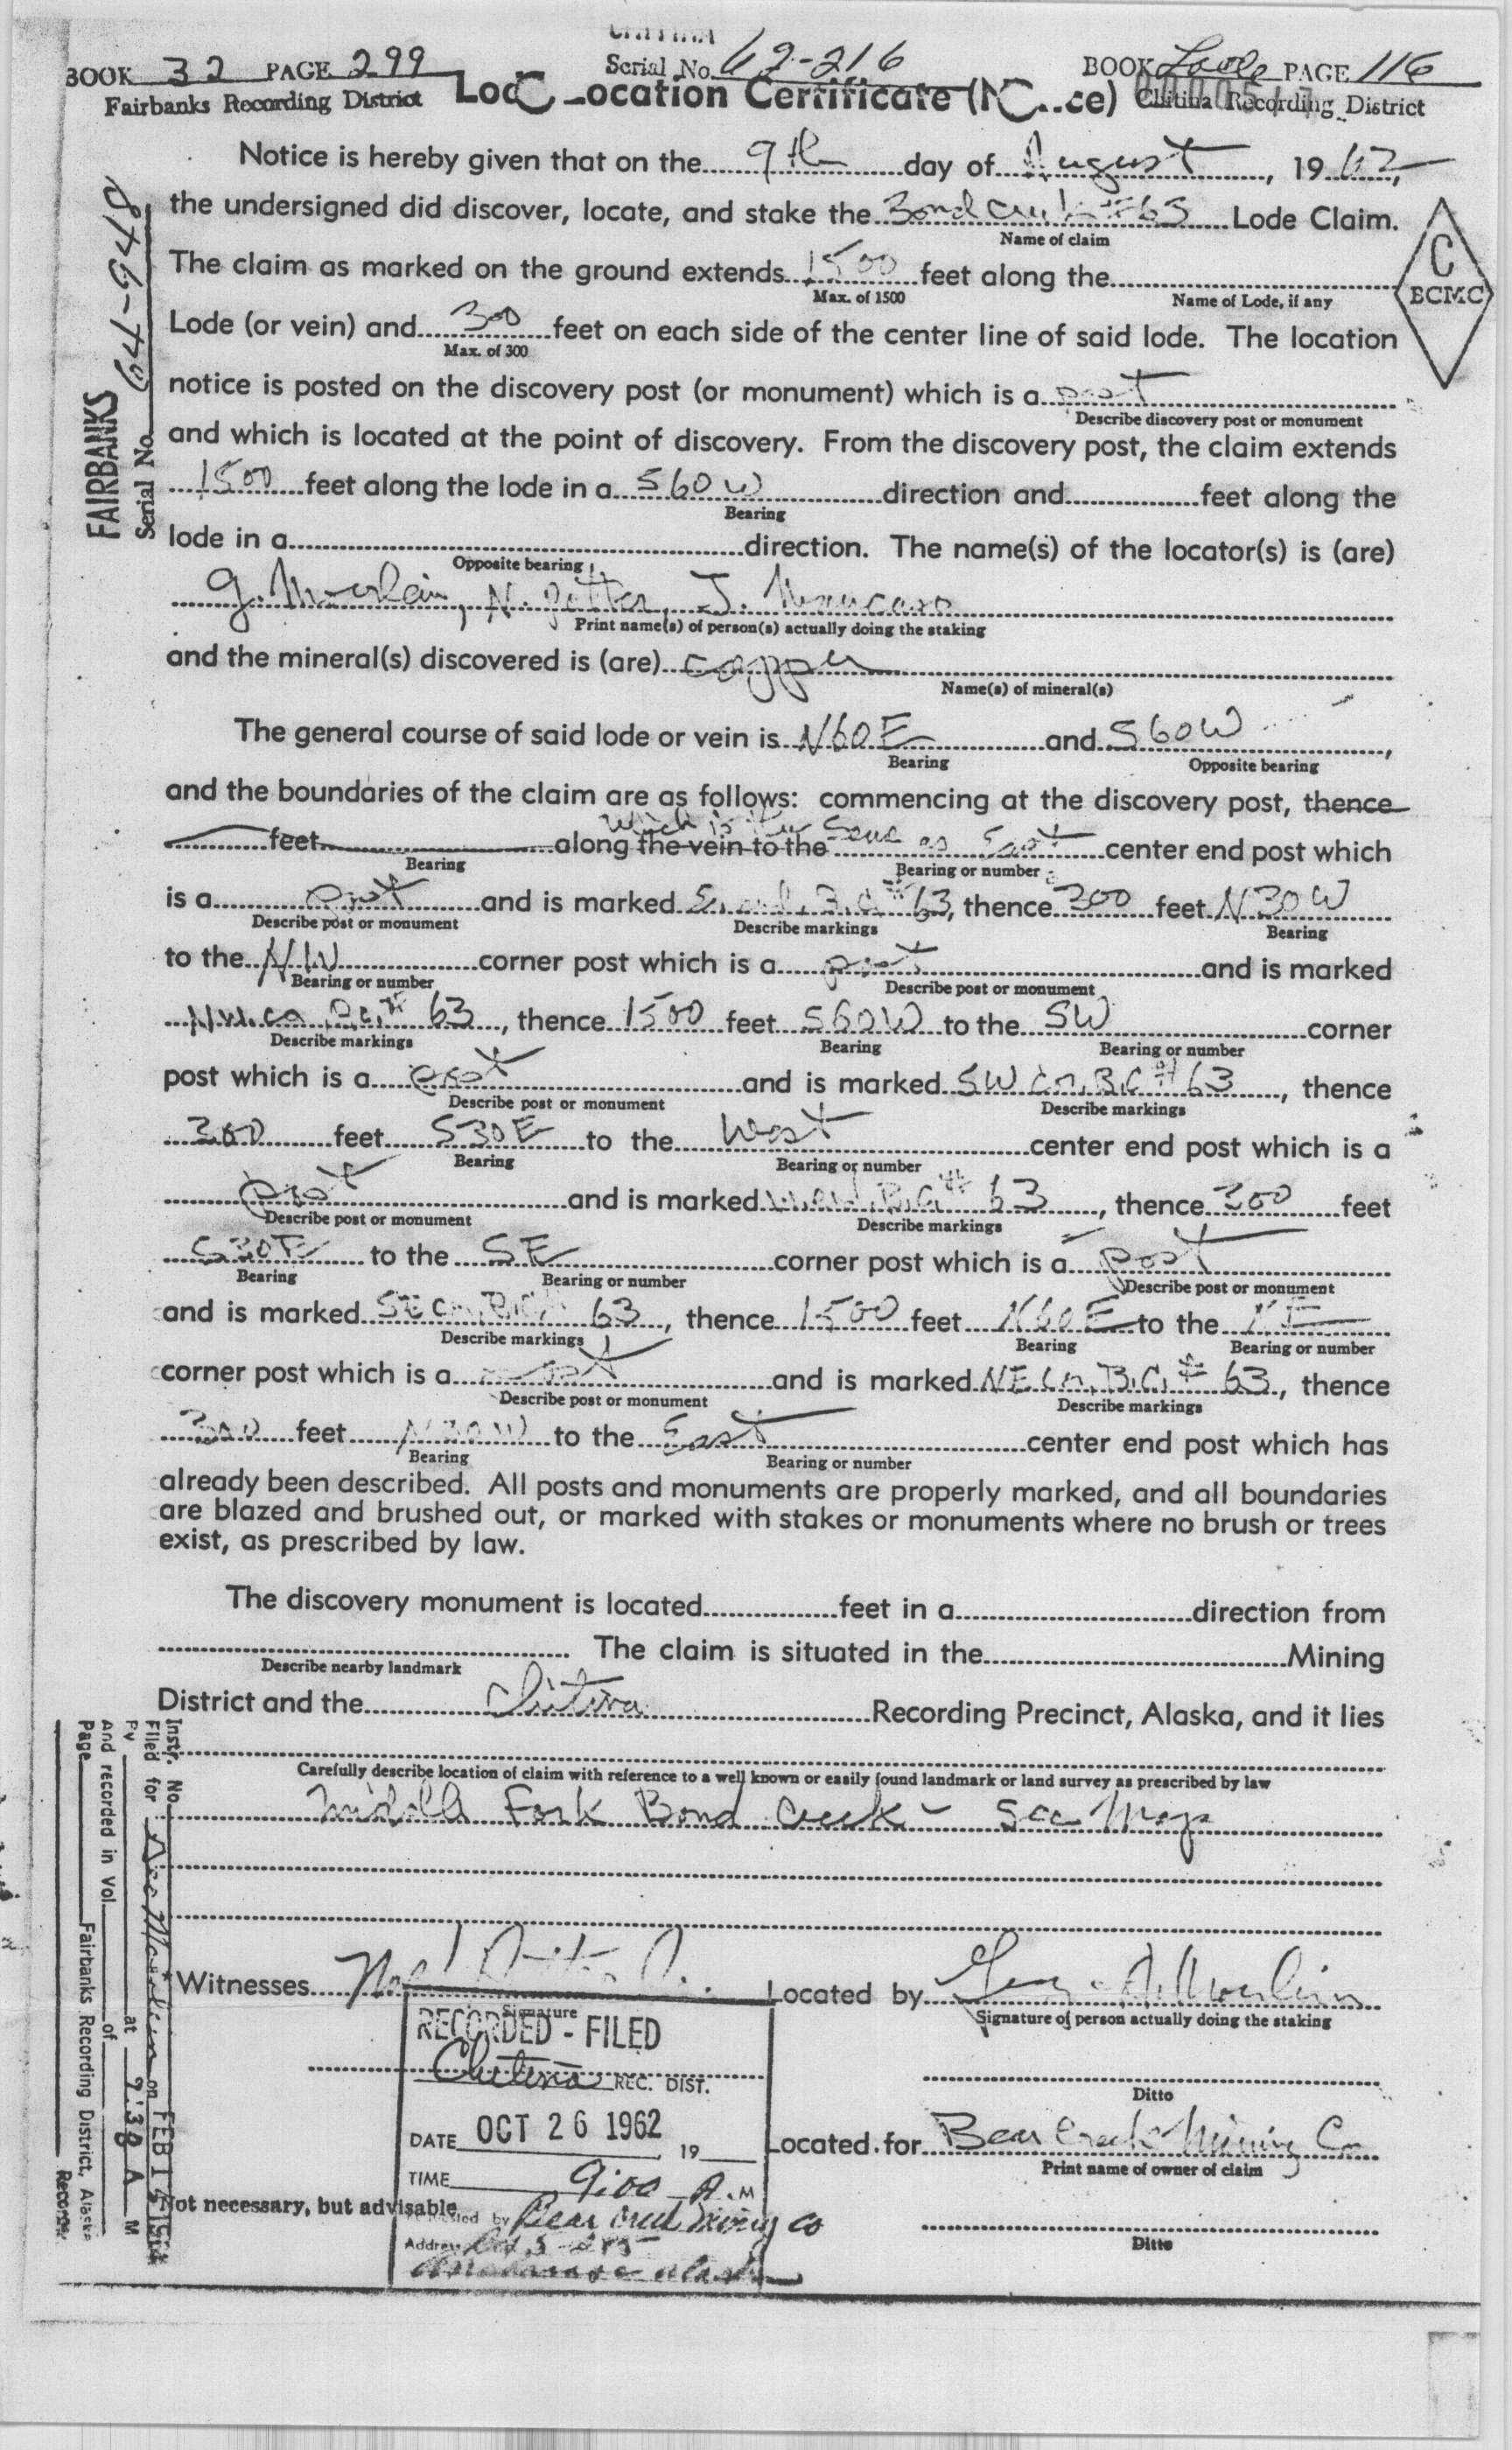 CHITINA
BOOK 32 PAGE 299 Serial No. 62-216 BOOK Lode PAGE 116
Fairbanks Recording District Chitina Recording District
Location Certificate
Notice is hereby given that on the 9th day of August, 1962,
the undersigned did discover, locate, and stake the Bond Creek #63 Lode Claim.
Name of claim
The claim as marked on the ground extends 1500 feet along the
Max. of 1500 Name of Lode, if any
C
BCMC
Lode (or vein) and 300 feet on each side of the center line of said lode. The location
Max. of 300
notice is posted on the discovery post (or monument) which is a post
Describe discovery post or monument
and which is located at the point of discovery. From the discovery post, the claim extends
1500 feet along the lode in a S60W direction and feet along the
Bearing
lode in a direction. The name(s) of the locator(s) is (are)
Opposite bearing
G. Moerlein, N. Potter, J.
Print name(s) of person(s) actually doing the staking
and the mineral(s) discovered is (are) copper
Name(s) of mineral(s)
The general course of said lode or vein is N60E and S60W,
Bearing Opposite bearing
and the boundaries of the claim are as follows: commencing at the discovery post, thence
which is the same as
feet along the vein to the East center end post which
Bearing Bearing or number
is a post and is marked #63, thence 300 feet N30W
Describe post or monument Describe markings Bearing
to the NW corner post which is a post and is marked
Bearing or number Describe post or monument
N.W. co B.C. # 63, thence 1500 feet S60W to the SW corner
Describe markings Bearing Bearing or number
post which is a post and is marked SW Cn. B.C #63, thence
Describe post or monument Describe markings
300 feet S30E to the West center end post which is a
Bearing Bearing or number
post and is marked B.C. # 63, thence 300 feet
Describe post or monument Describe markings
S30E to the SE corner post which is a post
Bearing Bearing or number Describe post or monument
and is marked SE Cn. B.C.# 63, thence 1500 feet N60E to the NE
Describe markings Bearing Bearing or number
corner post which is a post and is marked NE Cn. B.C. # 63, thence
Describe post or monument Describe markings
300 feet N30W to the East center end post which has
Bearing Bearing or number
already been described. All posts and monuments are properly marked, and all boundaries
are blazed and brushed out, or marked with stakes or monuments where no brush or trees
exist, as prescribed by law.
The discovery monument is located feet in a direction from
The claim is situated in the Mining
Describe nearby landmark
District and the Chitina Recording Precinct, Alaska, and it lies
Carefully describe location of claim with reference to a well known or easily found landmark or land survey as prescribed by law
Middle Fork Bond Creek - See Map
Witnesses Located by
Signature Signature of person actually doing the staking
RECORDED - FILED
Chitina REC. DIST.
Ditto
DATE OCT 26 1962 19
Located for Bear Creek Mining Co
Print name of owner of claim
TIME 9:00 A.M
Not necessary, but advisable
by Bear Creek Mining Co
Ditto
Address
Alaska
FAIRBANKS
Serial No. 64-9448
Instr. No.
Filed for on FEB
By at 9:30 A M
And recorded in Vol. of
Page Fairbanks Recording District, Alaska
Recorder